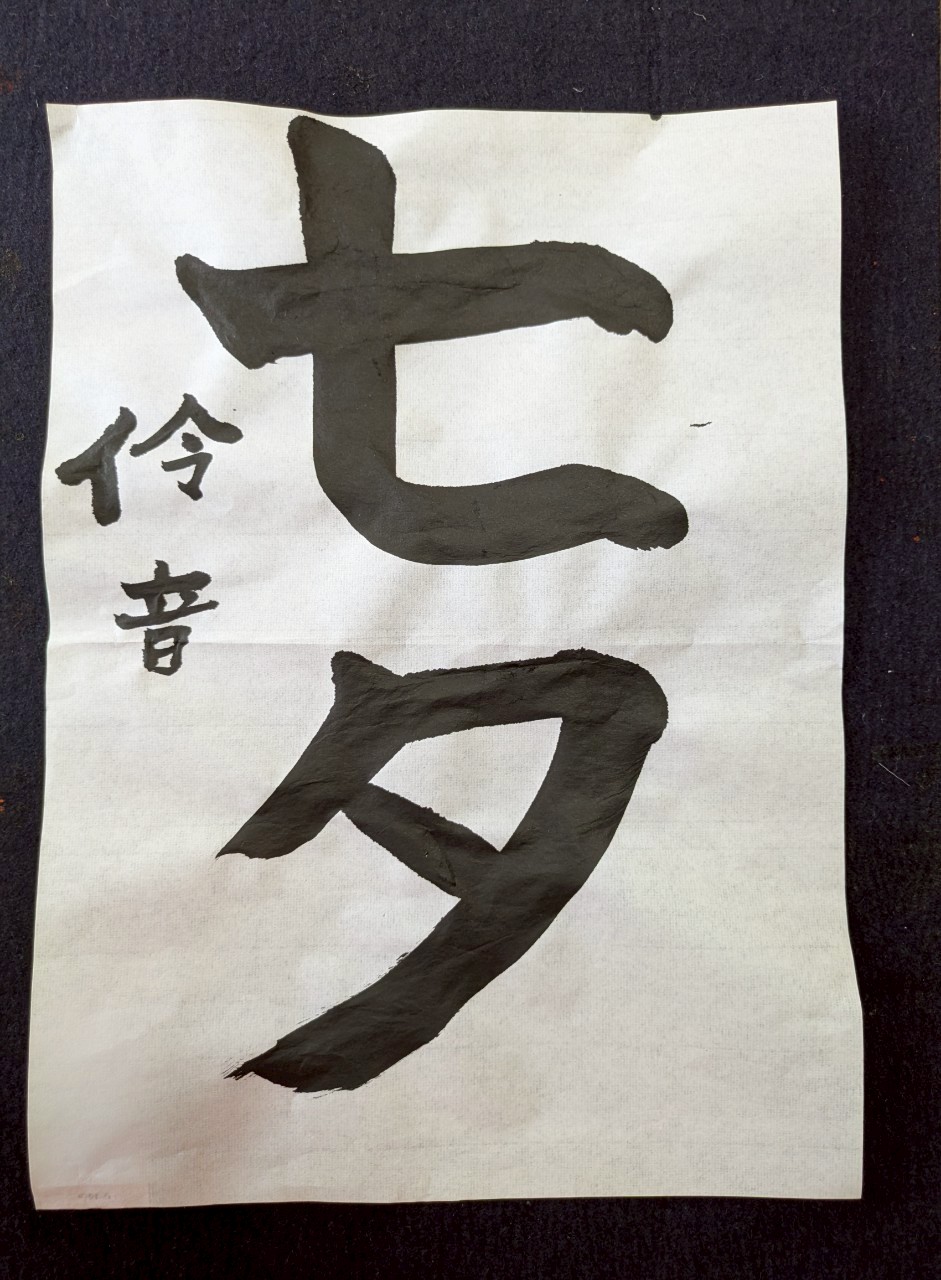 七夕
伶音